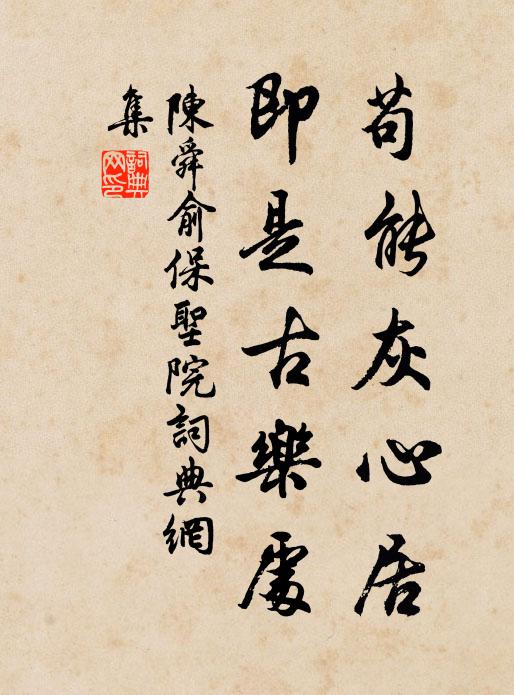 苟能灰心居
即是古樂處
陳舜俞保聖院詞典網
集
詞典網印